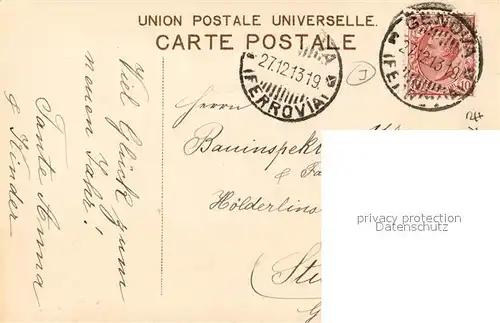 UNION POSTALE UNIVERSELLE.
CARTE POSTALE
GENOVA
27.12.13.19.
(FERROVIA)
27.12.13.19.
(FERROVIA)
Viel Glück zum
neuen Jahr!
Tante Anna
& Kinder
Herrn
Bauinspekt
& Fa
Hölderlins
Stu
privacy protection
Datenschutz